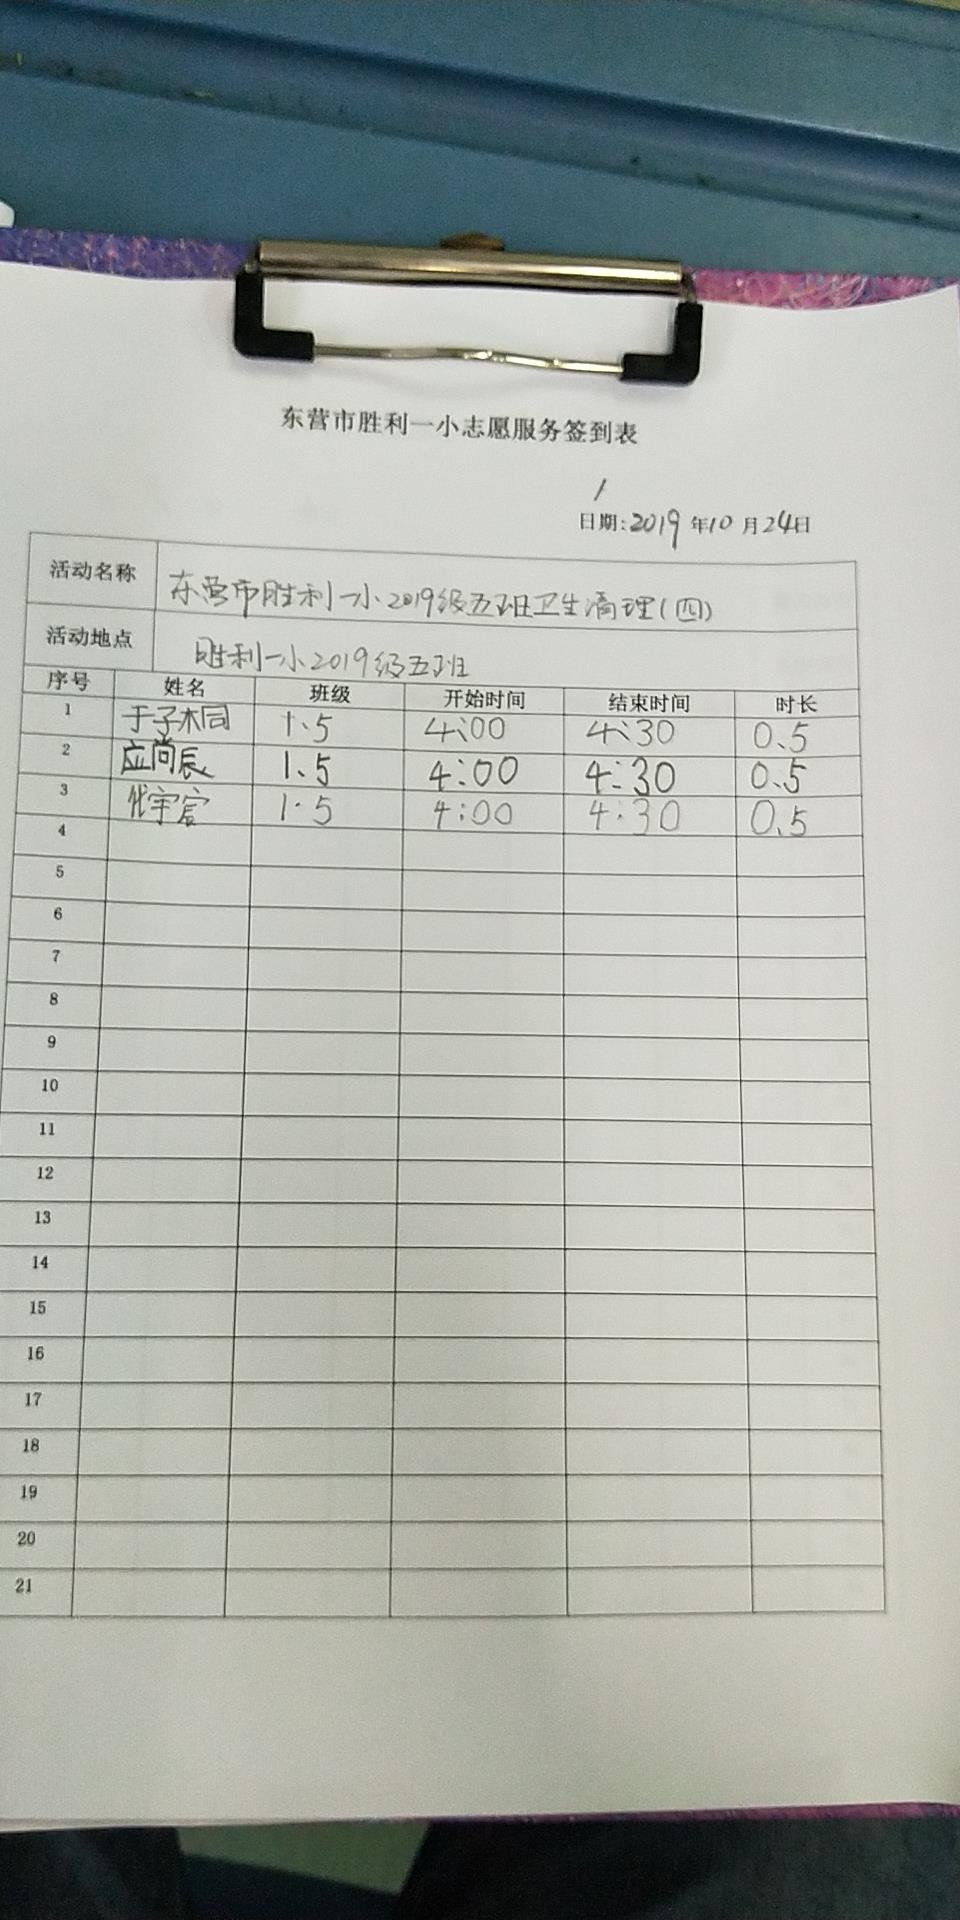 东营市胜利一小志愿服务签到表
日期:2019年10月24日
活动名称 东营市胜利一小2019级五班卫生清理(四)
活动地点 胜利一小2019级五班
序号 姓名 班级 开始时间 结束时间 时长
1 于子桐 1.5 4:00 4:30 0.5
2 应尚辰 1.5 4:00 4:30 0.5
3 代宇宸 1.5 4:00 4:30 0.5
4
5
6
7
8
9
10
11
12
13
14
15
16
17
18
19
20
21